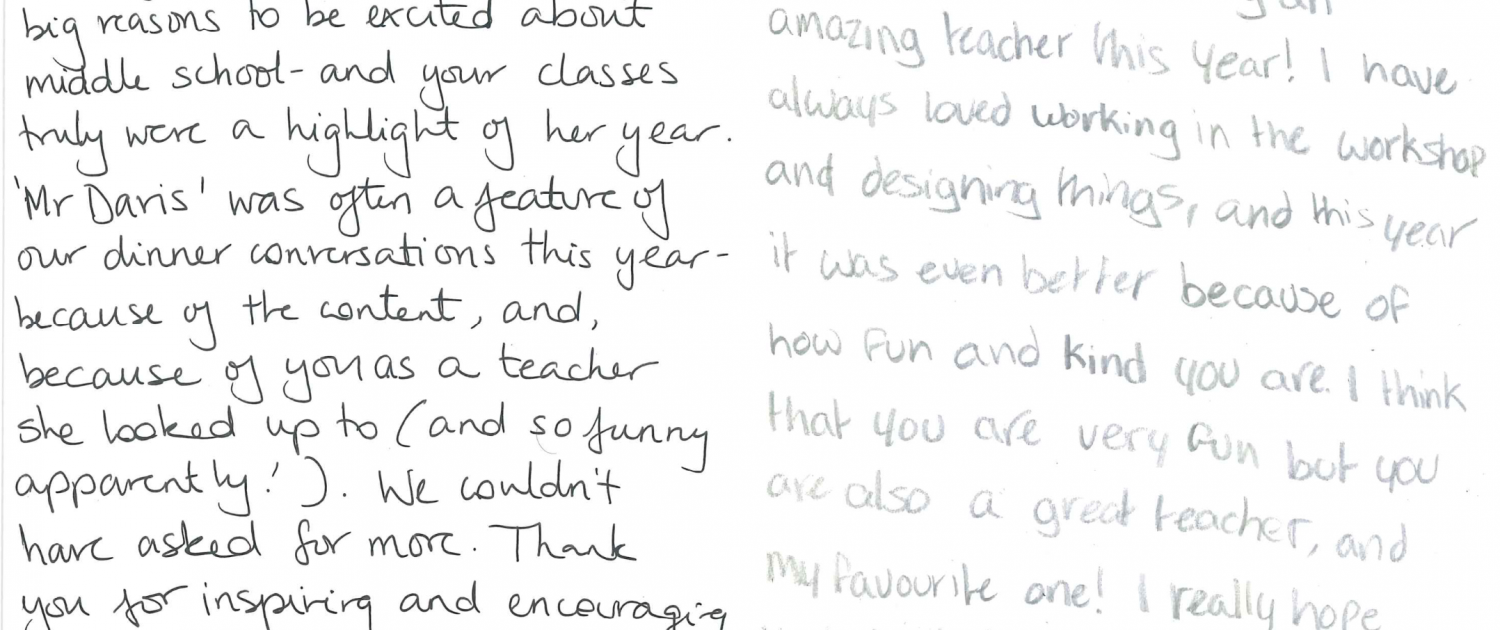 big reasons to be excited about
middle school- and your classes
truly were a highlight of her year.
'Mr Davis' was often a feature of
our dinner conversations this year-
because of the content, and,
because of you as a teacher
she looked up to (and so funny
apparently!). We couldn't
have asked for more. Thank
you for inspiring and encouraging
amazing teacher this year! I have
always loved working in the workshop
and designing things, and this year
it was even better because of
how fun and kind you are. I think
that you are very fun but you
are also a great teacher, and
my favourite one! I really hope